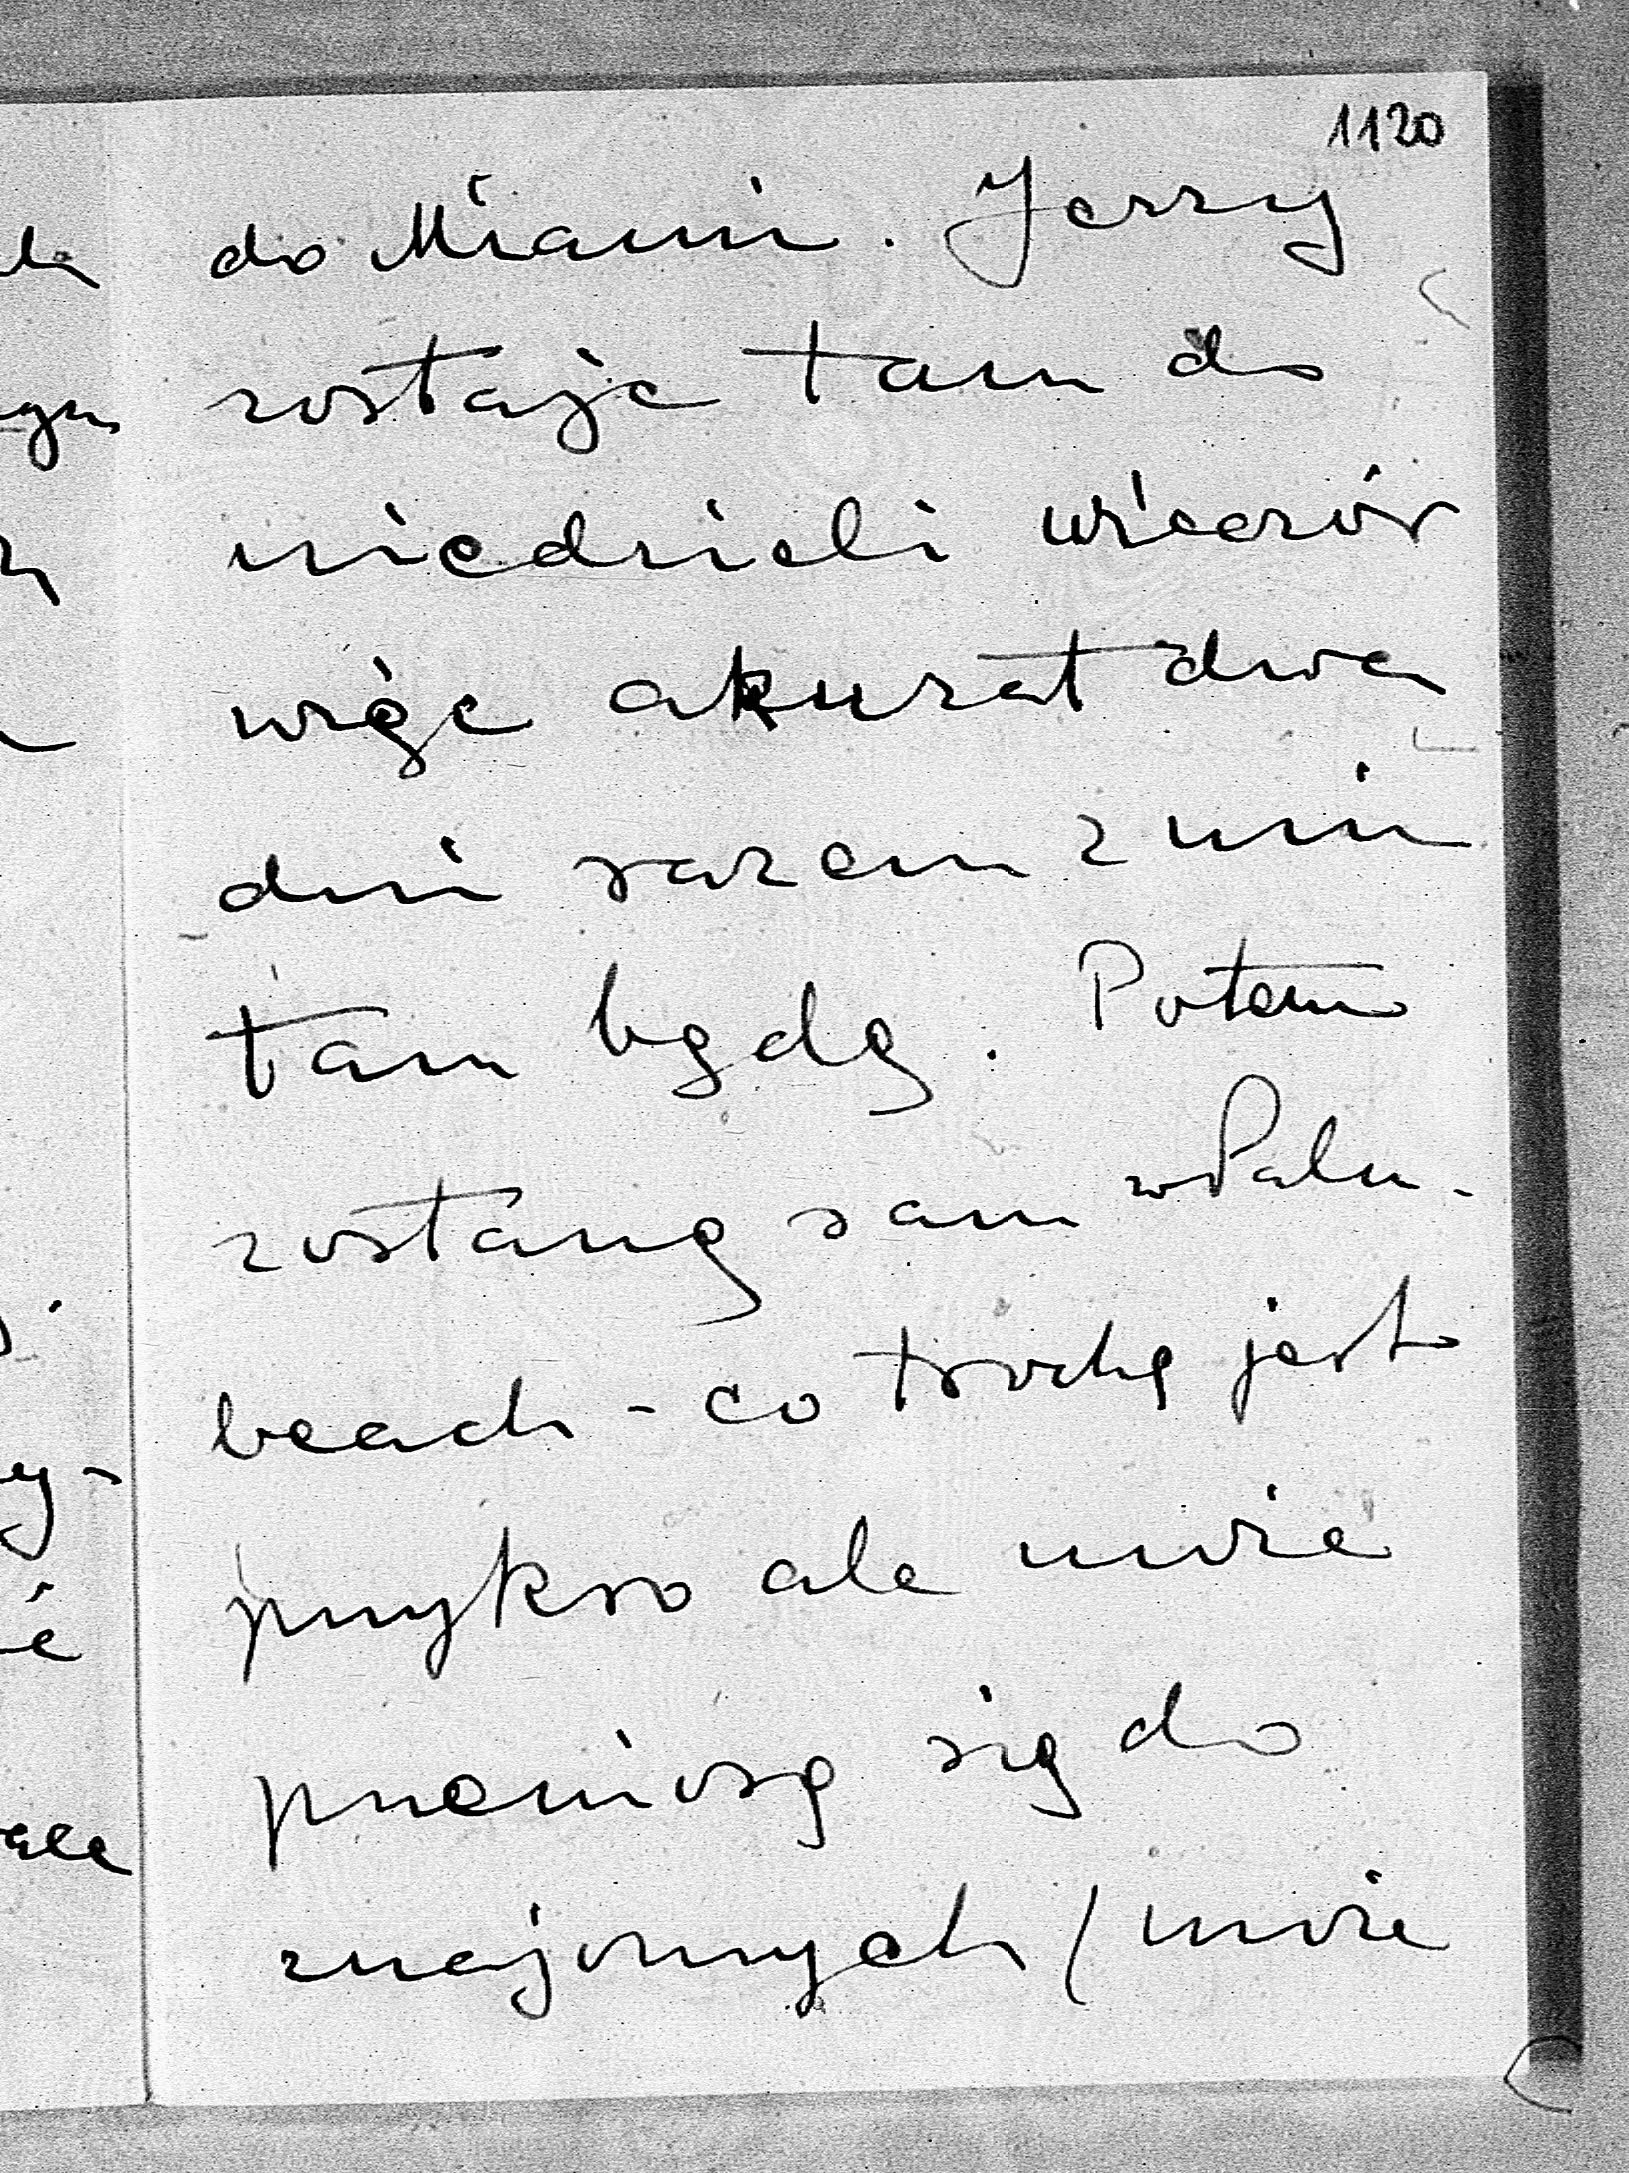 1120
do Miami. Jerzy
zostaje tam do
niedzieli wieczór
więc akurat dwa
dni razem z nim
tam będę. Potem
zostanę sam w Palm-
beach - co trochę jest
przykro ale może
przeniosę się do
znajomych / może